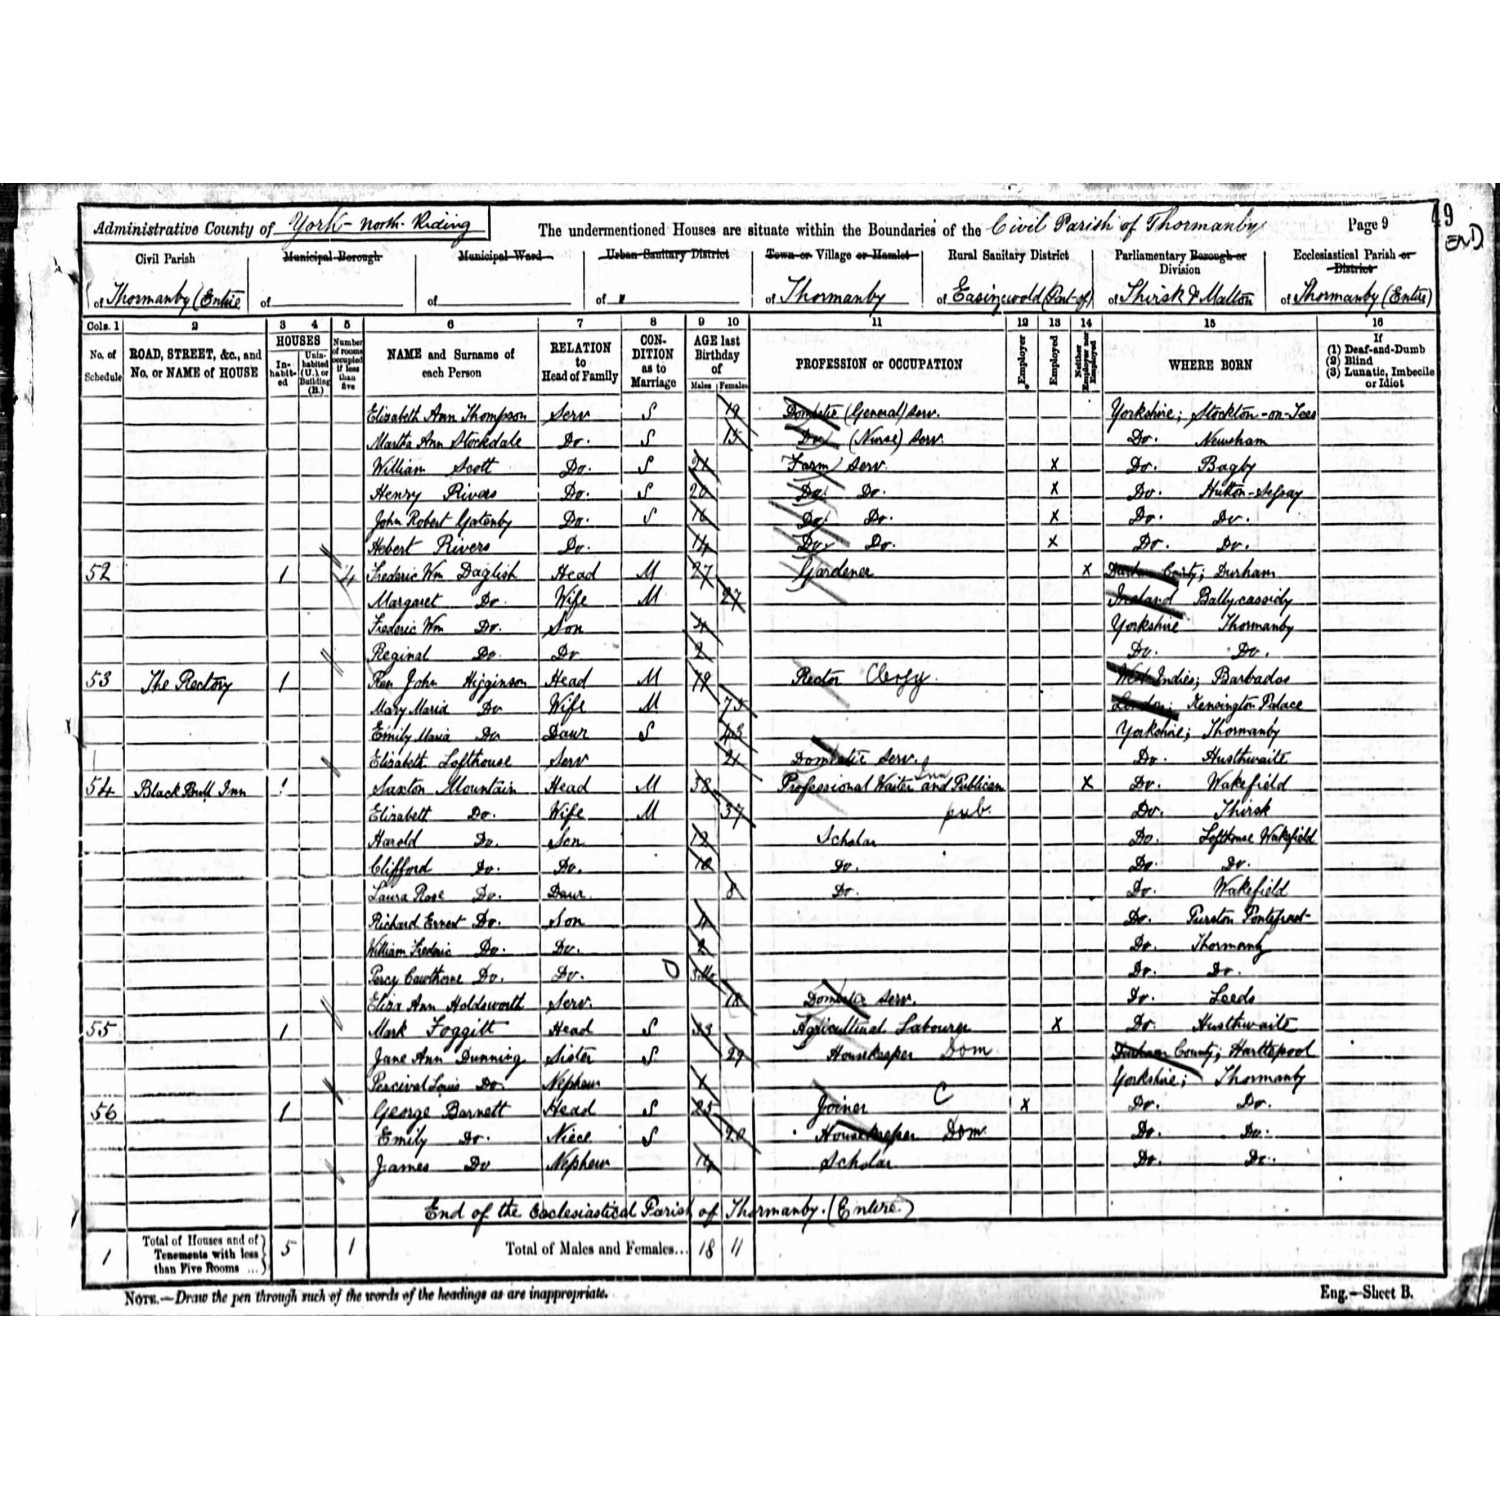 Administrative County of York - North Riding The undermentioned Houses are situate within the Boundaries of the Civil Parish of Thormanby Page 9 49
END
Civil Parish Municipal Borough Municipal Ward Urban Sanitary District Town or Village or Hamlet Rural Sanitary District Parliamentary Borough or Division Ecclesiastical Parish or District
of Thormanby (Entire of of of of Thormanby of Easingwold (Part of) of Thirsk & Malton of Thormanby (Entire)
Cols. 1 2 3 4 5 6 7 8 9 10 11 12 13 14 15 16
No. of Schedule ROAD, STREET, &c., and No. or NAME of HOUSE HOUSES In-habit-ed Unin-habited (U.) or Building (B.) Number of rooms occupied if less than five NAME and Surname of each Person RELATION to Head of Family CON-DITION as to Marriage AGE last Birthday of Males Females PROFESSION or OCCUPATION Employer Employed Neither Employer nor Employed WHERE BORN If (1) Deaf-and-Dumb (2) Blind (3) Lunatic, Imbecile or Idiot
Elizabeth Ann Thompson Serv S 19 Domestic (General) Serv. Yorkshire; Stockton-on-Tees
Martha Ann Stockdale Do. S 15 Do (Nurse) Serv. Do. Newsham
William Scott Do. S 21 Farm Serv X Do. Bagby
Henry Rivers Do. S 20 Do. Do. X Do. Hutton-Sessay
John Robert Gatenby Do. S 16 Do. Do. X Do. Do.
Hebert Rivers Do. 14 Do. Do. X Do. Do.
52 1 4 Frederic Wm Daglish Head M 27 Gardener X Durham County; Durham
Margaret Do. Wife M 27 Ireland Ballycassidy
Frederic Wm Do. Son 4 Yorkshire Thormanby
Reginal Do. Do 2 Do. Do.
53 The Rectory 1 Rev John Higginson Head M Rector Clergy West Indies; Barbados
Mary Maria Do Wife M 75 London; Kensington Palace
Emily Maria Do Daur S 43 Yorkshire; Thormanby
Elizabeth Lofthouse Serv 21 Domestic Serv. Do. Husthwaite
54 Black Bull Inn 1 Saxton Mountain Head M 38 Professional Waiter and Inn Publican X Do. Wakefield
Elizabeth Do. Wife M 37 pub. Do. Thirsk
Harold Do. Son 12 Scholar Do. Lofthouse Wakefield
Clifford Do. Do. 10 Do. Do Do.
Laura Rose Do. Daur 8 Do. Do. Wakefield
Richard Ernest Do. Son 4 Do. Purston Pontefract
William Frederic Do. Do. 2 Do. Thormanby
Percy Cawthorne Do. Do. Do. Do.
Eliza Ann Holdsworth Serv. 18 Domestic Serv. Do. Leeds
55 1 Mark Foggitt Head S 33 Agricultural Labourer X Do Husthwaite
Jane Ann Dunning Sister S 29 Housekeeper Dom Durham County; Hartlepool
Percival Louis Do Nephew Yorkshire; Thormanby
56 1 George Barnett Head S 25 Joiner C X Do. Do.
Emily Do. Niece S 20 Housekeeper Dom Do. Do.
James Do Nephew 14 Scholar Do. Do.
End of the Ecclesiastical Parish of Thormanby. (Entire)
1 Total of Houses and of Tenements with less than Five Rooms ... 5 1 Total of Males and Females... 18 11
NOTE.—Draw the pen through such of the words of the headings as are inappropriate. Eng.—Sheet B.